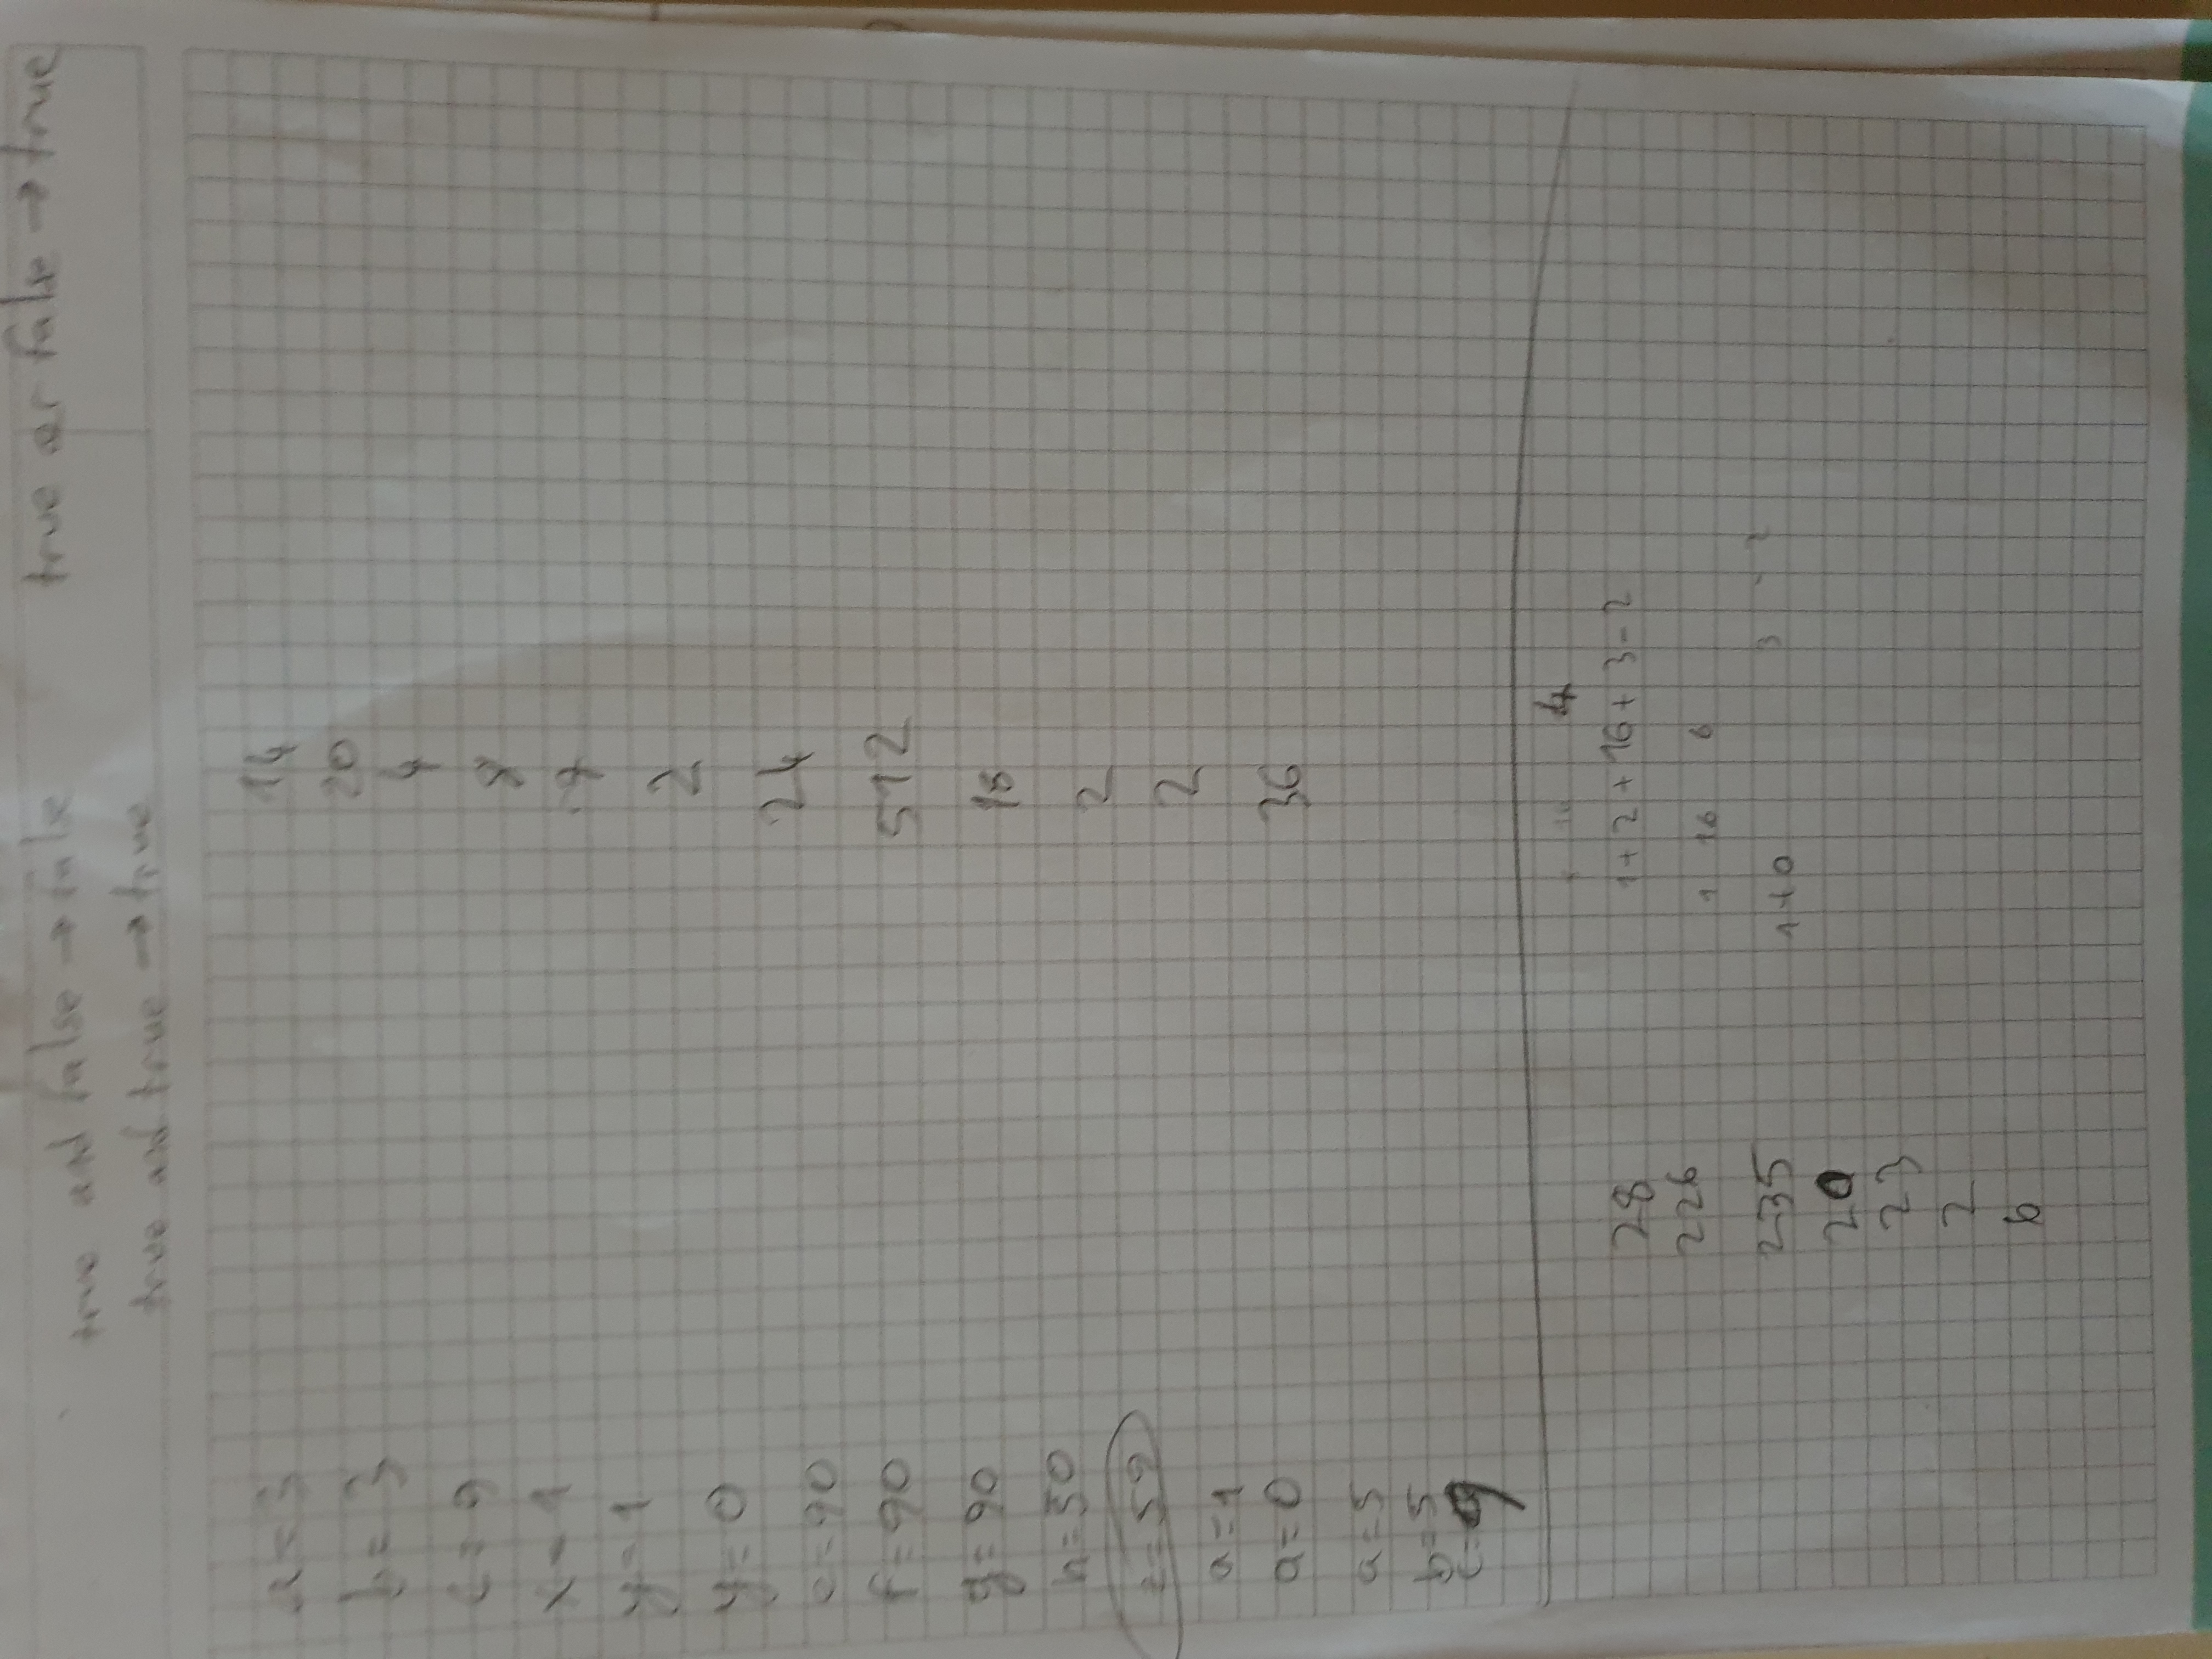 true and false → false
true or false → true
true and true → true
a = 3
b = 3
c = 9
x = 1
y = 1
y = 0
e = 90
f = 90
g = 90
h = 50
z = 59
a = 1
a = 0
a = 5
b = 5
c = 9
14
20
4
8
9
2
24
512
18
2
2
36
28
226
235
20
23
2
6
4
1 + 2 + 16 + 3 - 2
1 16 6
1 + 0 3 -